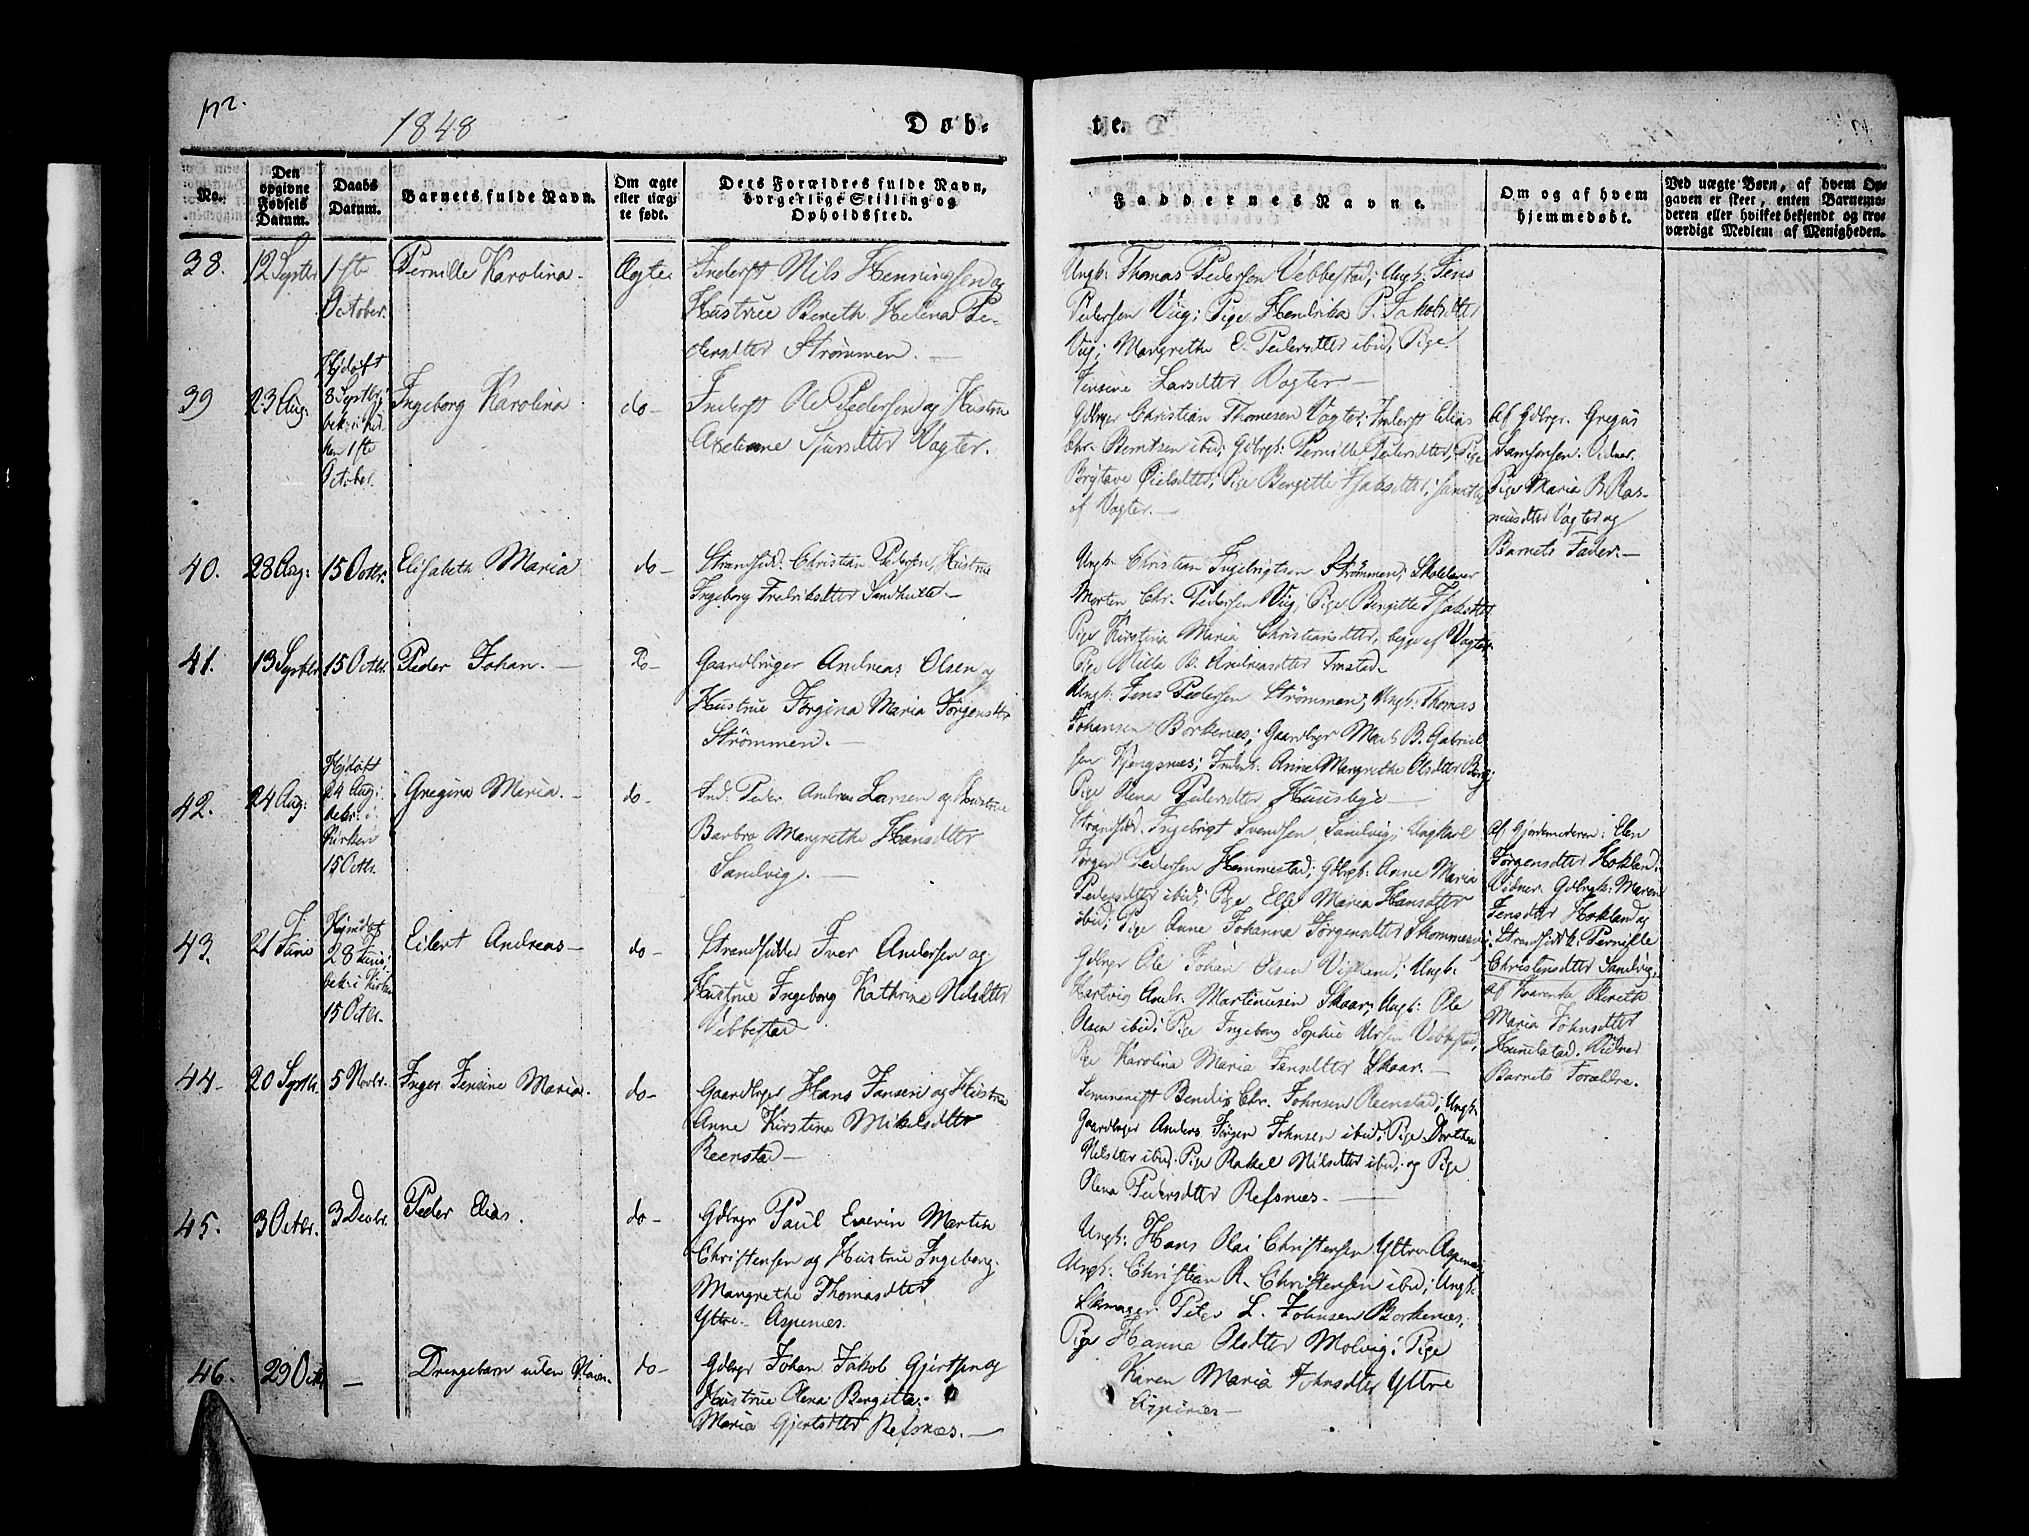 172.
1848
Døb-
te.
No.
Den
opgivne
Fødsels
Datum.
Daabs
Datum.
Barnets fulde Navn.
Om ægte
eller uæg-
te født.
Dets Forældres fulde Navn,
borgerlige Stilling og
Opholdssted.
Faddernes Navne.
Om og af hvem
hjemmedøbt.
Ved uægte Børn, af hvem Op-
gaven er skeet, enten Barnemo-
deren eller hvilket bekjendt og tro-
værdigt Medlem af Menigheden.
38.
12 Septbr
1ste
October.
Pernille Karolina.
Ægte
Inderst Nils Henningsen og
Hustrue Bereth Helena Pe-
dersdtter Strømmen.
Ungk: Thomas Pedersen Vebbestad; Ungk: Jens
Pedersen Viig; Pige Hendrika P. Jakobsdtter
Viig; Margrethe E. Pedersdtter ibid; Pige
Jensine Larsdtter Vagter
39
23 Aug:
Hjdøft
8 Septbr;
bek: i Kir
ken 1ste
October.
Ingeborg Karolina
do
Inderst Ole Pedersen og Hustrue
Axeliane Sjursdtter Vagter.
Gdbrger Christian Thomesen Vagter; Inderst Elias
Chr. Berntsen ibid; Gdbrgk: Pernille Pedersdtter, Pige
Pige Bergitte
af Vagter.
Af Gdbrgr. Gregus
Samsonsen. Vidner.
Pige Maria B. Ras-
musdtter Vagter og
Barnets Fader.
40.
28 Aug:
15 Octbr.
Elisabeth Maria
do
Strandsid: Christian Pedersen, Hustrue
Ingeborg Fredriksdtter Sandhulte.
Ungk: Christian Ingebrigtsen Strømmen; Skolelærer
Morten Chr. Pedersen Viig; Pige Bergitte
Pige Kirstina Maria Christiansdtter, begge af Vagter
Pige Nille B. Andreasdtter
41.
13 Septbr
15 Octbr.
Peder Johan.
Do
Gaardbruger Andreas Olsen og
Hustrue Jørgina Maria Jørgensdtr
Strømmen.
Ungk: Jens Pedersen Strømmen; Ungk: Thomas
Johansen Borkenæs; Gaardbrgr Mads B. Gabriel
sen Kjengsnæs; Inderst: Anne Margrethe Olsdtter Berg;
Pige Olena Pedersdtter Huusbye
42.
24 Aug:
Hjdøft
24 Aug:
bekr: i
Kirken
15 Octbr.
Gregina Maria.
do
Ind: Peder Andreas Larsen og Hustrue
Barbro Margrethe Hansdtter
Sandvig.
Strandsid. Ingebrigt Svendsen, Sandvig; Ungkarl
Jørgen Pedersen Hemmestad; Gdbrgk: Anne Maria
Pedersdtter ibid; Pige Else Maria Hansdtter
ibid; Pige Anne Johanna Jørgensdtter
Af Gjordemoderen: Elen
Jørgensdtter Hokland.
Vidner. Gdbrgk: Maren
Jensdtter Hokland og
Strandsidk: Pernille
Christensdtter Sandvig.
43.
21 Juni
Hjemdøbt
28 Juni;
bek: i Kirken
15 Octbr.
Eilert Andreas
do
Strandsidde Iver Andersen og
Hustrue Ingeborg Kathrine Nilsdtter
Vebbestad
Gdbrgr Ole Johan Olsen Ungk:
Hartvig Andr. Martinusen Skaar; Ungk: Ole
Olsen ibid; Pige Ingeborg Sophie Vebbestad,
Pige Karolina Maria Jensdtter Skaar.
af Bereth
Maria Johnsdtter
Hundstad. Vidner
Barnets Forældre.
44
20 Septb.
5 Novbr.
Inger Jensine Maria.
do
Gaardbrger Hans Jansen og Hustrue
Anne Kirstina Mikelsdtter
Reenstad
Seminarist Bendix Chr. Johnsen Reenstad; Ungk:
Gaardbrger Anders Jørgen Johnsen ibid; Pige Dorthea
Nilsdtter ibid. Pige Rakel Nilsdtter ibid. og Pige
Olena Pedersdtter Refsnæs.
45.
3 Octbr.
3 Decbr.
Peder Elias.
do
Gdbrgr Paul Martin
Christensen og Hustrue Ingeborg
Margrethe Thomasdtter
Yttre- Aspenæs.
Ungk: Hans Olai Christensen Yttre Aspenæs
Ungk: Christian R. Christensen ibid; Ungk:
Peter L. Johnsen Borkenæs;
Pige Hanna Olsdtter Molvig; Pige
Karen Maria Johnsdtter Yttre
Aspenæs
46.
29 Octb
Drengebarn uden Navn.
do
Gdbrgr Johan Jakob Gjertsen og
Hustrue Olena Bergitte
Maria Gjertsdtter Refsnæs.